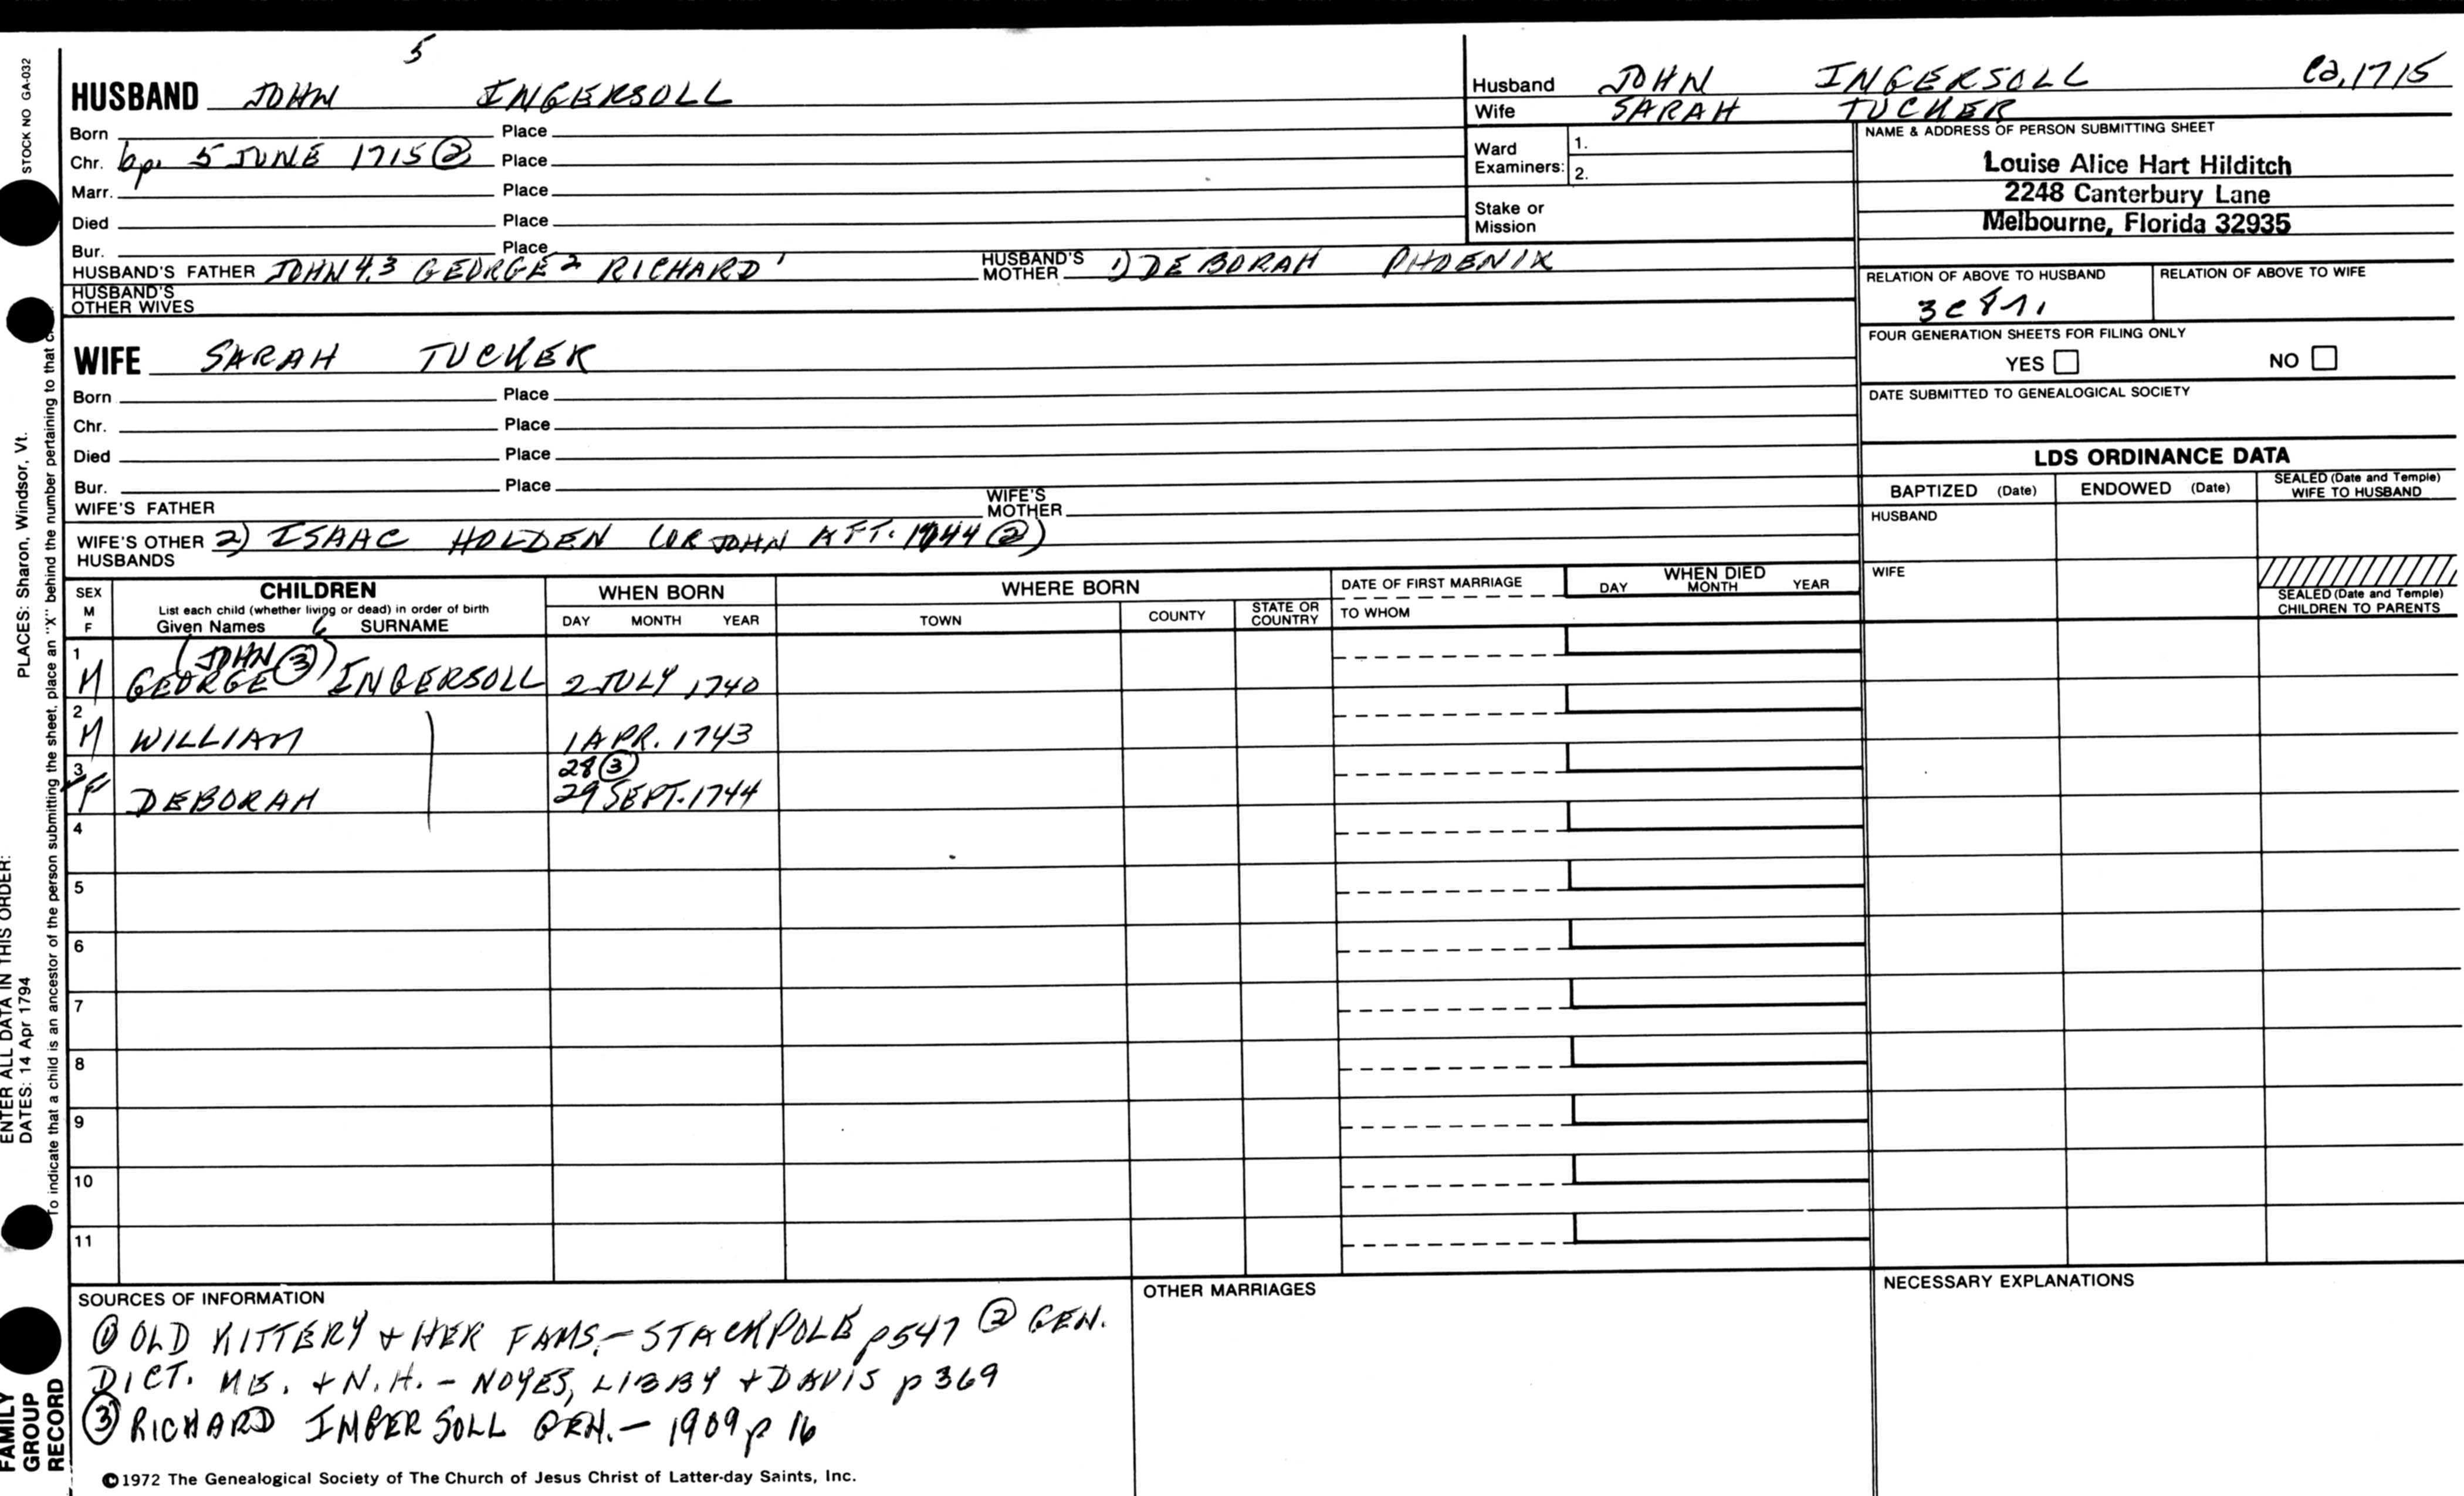 5
HUSBAND JOHN INGERSOLL
Born Place
Chr. bp. 5 JUNE 1715 ② Place
Marr. Place
Died Place
Bur. Place
HUSBAND'S FATHER JOHN 4,3 GEORGE 2 RICHARD 1 HUSBAND'S MOTHER 1) DEBORAH PHOENIX
HUSBAND'S OTHER WIVES
WIFE SARAH TUCKER
Born Place
Chr. Place
Died Place
Bur. Place
WIFE'S FATHER WIFE'S MOTHER
WIFE'S OTHER HUSBANDS 2) ISAAC HOLDEN (OR JOHN AFT. 1744 ②)
Husband JOHN INGERSOLL Ca. 1715
Wife SARAH TUCKER
Ward Examiners: 1.
2.
Stake or Mission
NAME & ADDRESS OF PERSON SUBMITTING SHEET
Louise Alice Hart Hilditch
2248 Canterbury Lane
Melbourne, Florida 32935
RELATION OF ABOVE TO HUSBAND RELATION OF ABOVE TO WIFE
FOUR GENERATION SHEETS FOR FILING ONLY
YES NO
DATE SUBMITTED TO GENEALOGICAL SOCIETY
LDS ORDINANCE DATA
BAPTIZED (Date) ENDOWED (Date) SEALED (Date and Temple) WIFE TO HUSBAND
HUSBAND
WIFE
SEALED (Date and Temple) CHILDREN TO PARENTS
SEX M F CHILDREN WHEN BORN WHERE BORN DATE OF FIRST MARRIAGE WHEN DIED
List each child (whether living or dead) in order of birth
Given Names 6 SURNAME DAY MONTH YEAR TOWN COUNTY STATE OR COUNTRY TO WHOM DAY MONTH YEAR
1 (JOHN ③)
M GEORGE INGERSOLL 2 JULY 1740
2
M WILLIAM 1 APR. 1743
3 28 ③
F DEBORAH 29 SEPT. 1744
4
5
6
7
8
9
10
11
SOURCES OF INFORMATION
① OLD KITTERY + HER FAMS. - STACKPOLE p547 ② GEN.
DICT. ME. + N.H. - NOYES, LIBBY + DAVIS p 369
③ RICHARD INGERSOLL GEN. - 1909 p 16
OTHER MARRIAGES
NECESSARY EXPLANATIONS
©1972 The Genealogical Society of The Church of Jesus Christ of Latter-day Saints, Inc.
STOCK NO GA-032
PLACES: Sharon, Windsor, Vt.
ENTER ALL DATA IN THIS ORDER:
DATES: 14 Apr 1794
To indicate that a child is an ancestor of the person submitting the sheet, place an "X" behind the number pertaining to that
FAMILY
GROUP
RECORD